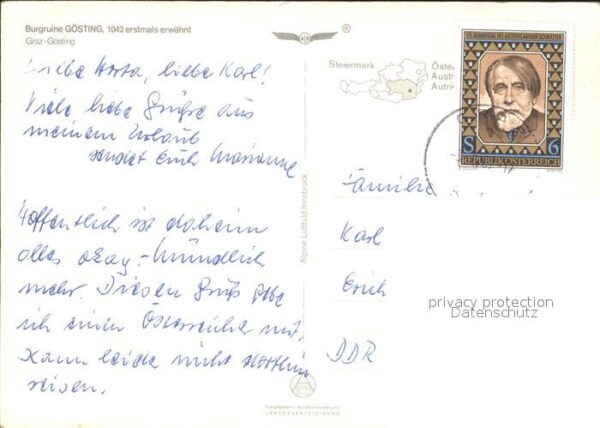 Burgruine GÖSTING, 1042 erstmals erwähnt
Graz-Gösting
Liebe Herta, liebe Karl!
Viele liebe Grüße aus
meinem Urlaub
sendet Euch Marianne
Hoffentlich ist daheim
alles okay. - Mündlich
mehr. Diesen Gruß gebe
ich einem Österreicher mit.
Kann leider nicht dorthin
reisen.
Alpine Luftbild Innsbruck
Steiermark
Öste
Aust
Autri
S
6
REPUBLIK ÖSTERREICH
Familie
Karl
Erich
DDR
privacy protection
Datenschutz
LANDESVERTEIDIGUNG